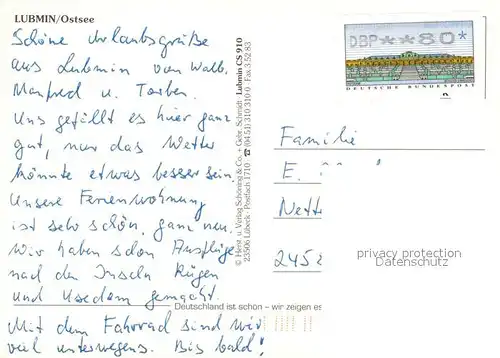 LUBMIN/Ostsee
Schöne Urlaubsgrüße
aus Lubmin von Walb.
Manfred u. Torben.
Uns gefällt es hier ganz
gut, nur das Wetter
könnte etwas besser sein.
Unsere Ferienwohnung
ist sehr schön, ganz neu.
Wir haben schon Ausflüge
nach den Inseln Rügen
und Usedom gemacht.
Mit dem Fahrrad sind wir
viel unterwegs. Bis bald!
Deutschland ist schön – wir zeigen es
© Herst. u. Verlag Schöning & Co. + Gebr. Schmidt · Lubmin CS 910
23506 Lübeck · Postfach 1710 · ☎ (04 51) 310 310-0 · Fax 3 52 83
DBP**80*
DEUTSCHE BUNDESPOST
Familie
E.
Nett
245
privacy protection
Datenschutz